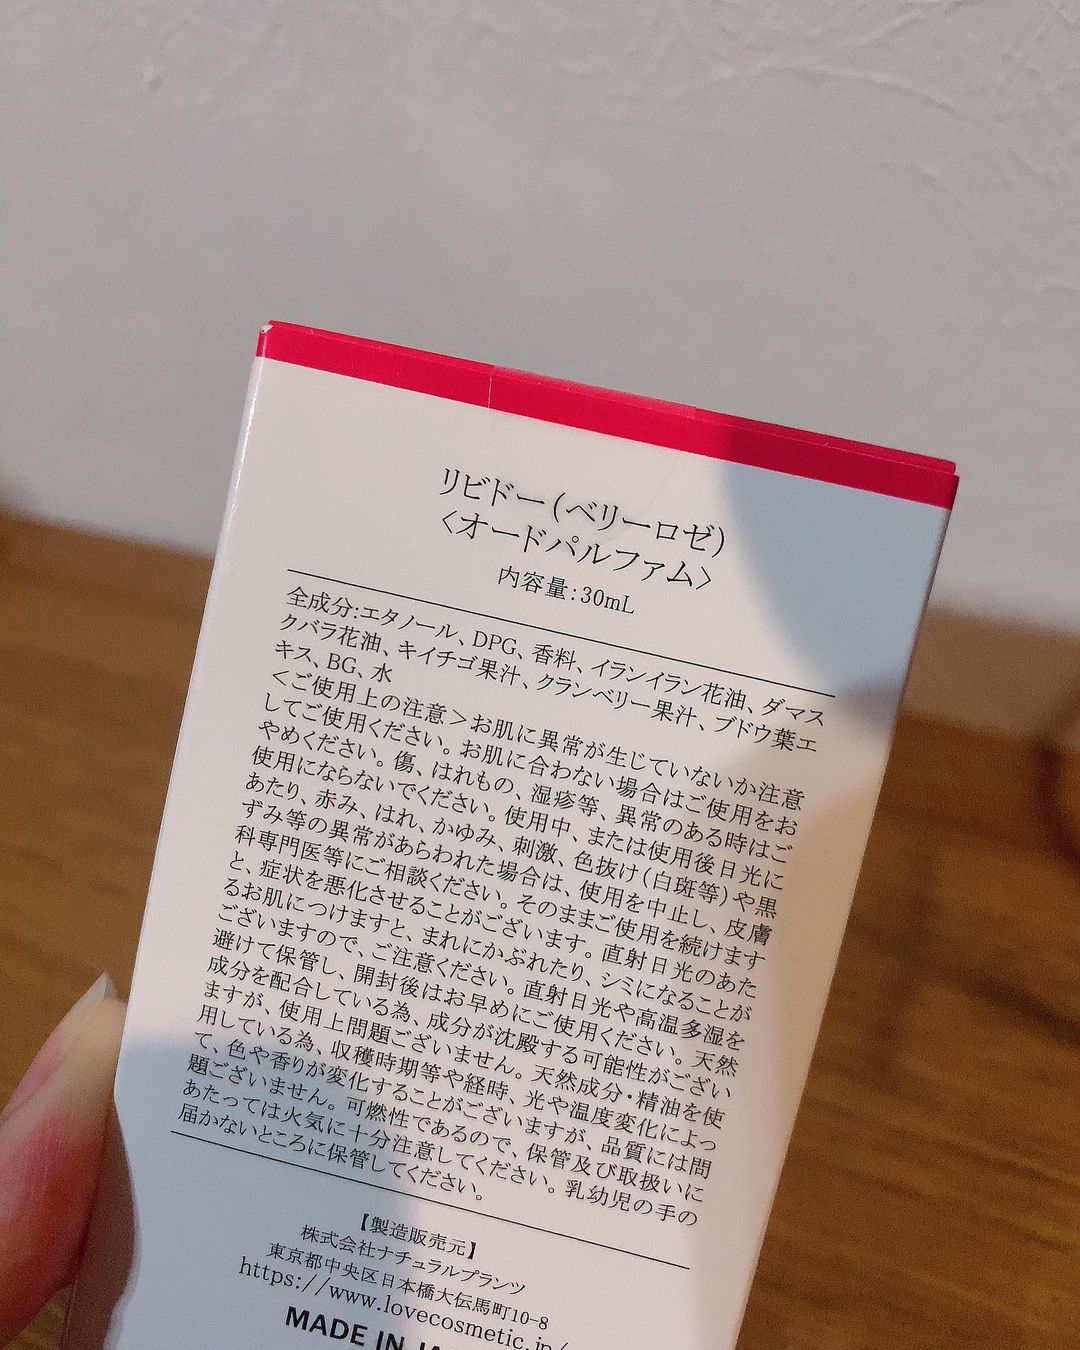 リビドー(ベリーロゼ)
<オードパルファム>
内容量:30mL
全成分:エタノール、DPG、香料、イランイラン花油、ダマス
クバラ花油、キイチゴ果汁、クランベリー果汁、ブドウ葉エ
キス、BG、水
<ご使用上の注意>お肌に異常が生じていないか注意
してご使用ください。お肌に合わない場合はご使用をお
やめください。傷、はれもの、湿疹等、異常のある時はご
使用にならないでください。使用中、または使用後日光に
あたり、赤み、はれ、かゆみ、刺激、色抜け(白斑等)や黒
ずみ等の異常があらわれた場合は、使用を中止し、皮膚
科専門医等にご相談ください。そのままご使用を続けます
と、症状を悪化させることがございます。直射日光のあた
るお肌につけますと、まれにかぶれたり、シミになることが
ございますので、ご注意ください。直射日光や高温多湿を
避けて保管し、開封後はお早めにご使用ください。天然
成分を配合している為、成分が沈殿する可能性がござい
ますが、使用上問題ございません。天然成分・精油を使
用している為、収穫時期等や経時、光や温度変化によっ
て、色や香りが変化することがございますが、品質には問
題ございません。可燃性であるので、保管及び取扱いに
あたっては火気に十分注意してください。乳幼児の手の
届かないところに保管してください。
【製造販売元】
株式会社ナチュラルプランツ
東京都中央区日本橋大伝馬町10-8
https://www.lovecosmetic.jp/
MADE IN